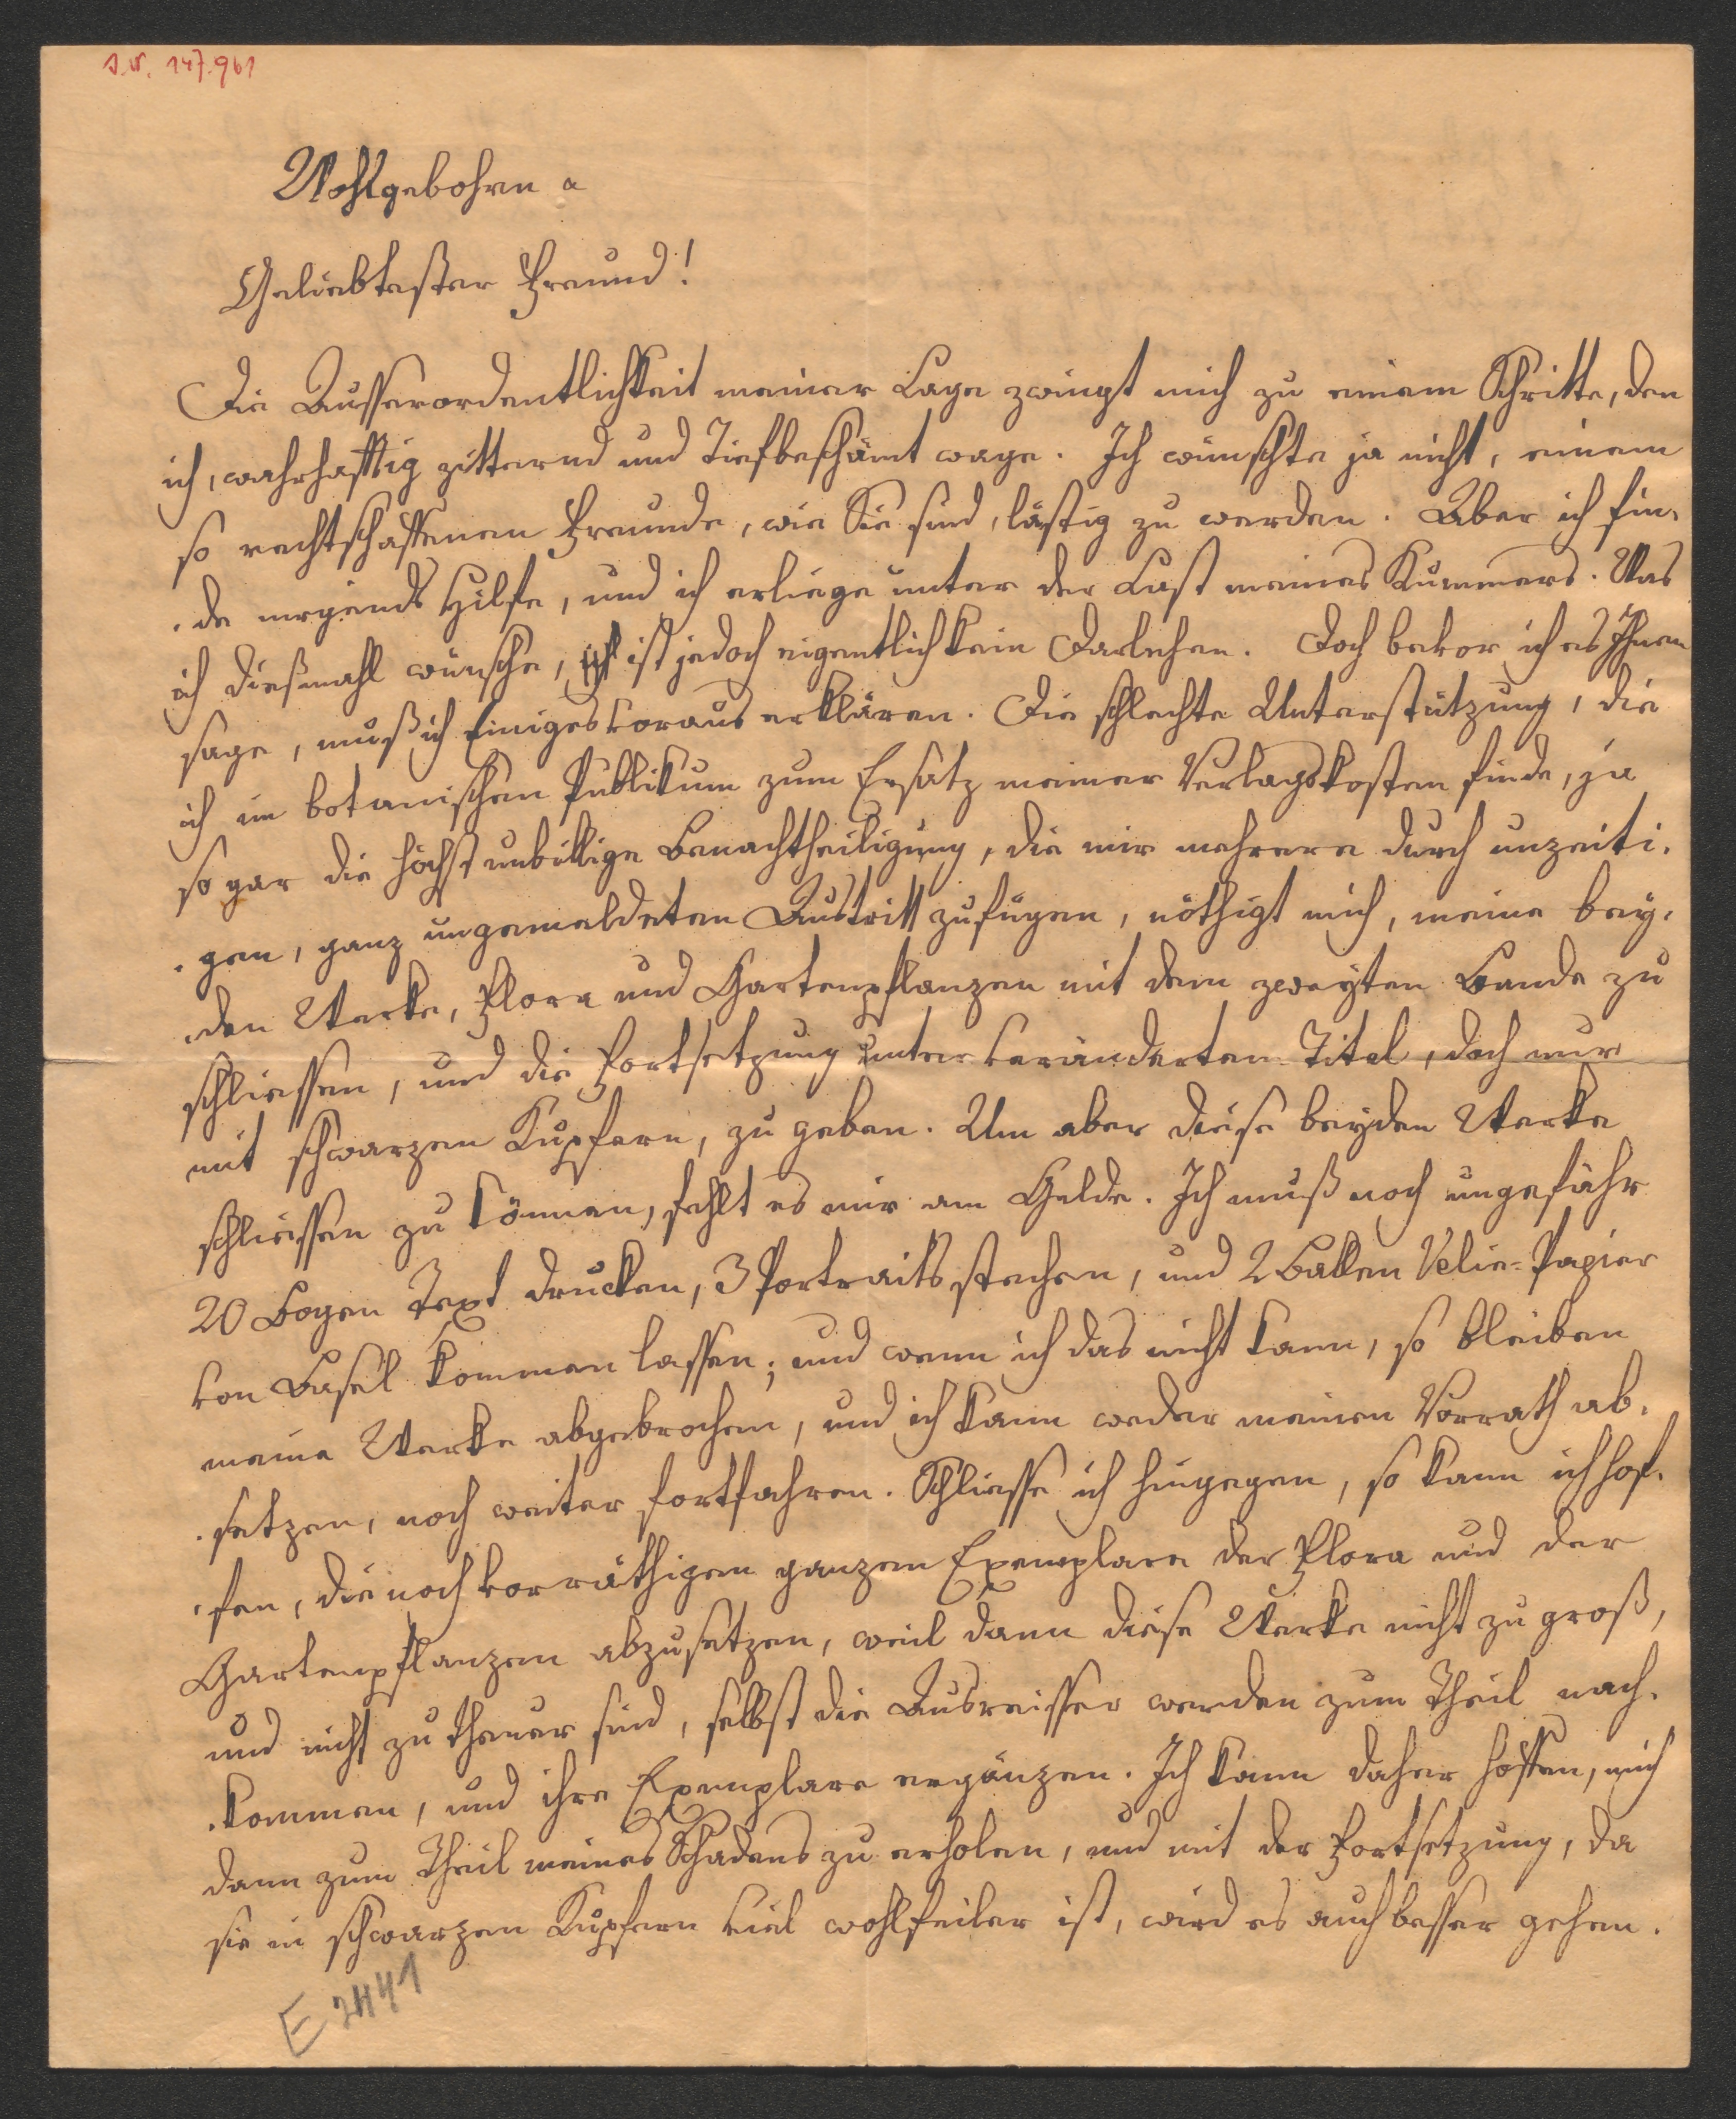 I.N. 147.961
Wohlgebohrn
Geliebtester Freund!
Die Ausserordentlichkeit meiner Lage zwingt mich zu einem Schritte, den
ich, wahrhaftig zitternd und tiefbeschämt wage. Ich wünschte ja nicht, einem
so rechtschaffenen Freunde, wie Sie sind, lästig zu werden. Aber ich fin-
de nirgends Hilfe, und ich erliege unter der Last meines Kummers. Was
ich dießmahl wünsche, ist jedoch eigentlich kein Darlehen. Doch bevor ich es Ihnen
sage, muß ich Einiges voraus erklären. Die schlechte Unterstützung, die
ich im botanischen Publikum zum Ersatz meiner Verlagskosten finde, ja
so gar die höchst unbillige Benachtheiligung, die mir mehrere durch unzeiti-
gen, ganz ungemeldeten Austritt zufügen, nöthigt mich, meine bey-
den Werke, Flora und Gartenpflanzen mit dem zweyten Bande zu
schliessen, und die Fortsetzung unter verändertem Titel, doch nur
mit schwarzen Kupfern, zu geben. Um aber diese beyden Werke
schliessen zu können, fehlt es mir am Gelde. Ich muß noch ungefähr
20 Bogen Text drucken, 3 Portraits stechen, und 2 Ballen Velin-Papier
von Basel kommen lassen; und wenn ich das nicht kann, so bleiben
meine Werke abgebrochen, und ich kann weder meinen Vorrath ab-
setzen, noch weiter fortfahren. Schliesse ich hingegen, so kann ich hof-
fen, die noch vorräthigen ganzen Exemplare der Flora und der
Gartenpflanzen abzusetzen, weil dann diese Werke nicht zu groß,
und nicht zu theuer sind, selbst die Ausreisser werden zum Theil nach-
kommen, und ihre Exemplare ergänzen. Ich kann daher hoffen, mich
dann zum Theil meines Schadens zu erholen, und mit der Fortsetzung, da
sie in schwarzen Kupfern viel wohlfeiler ist, wird es auch besser gehen.
E 2441